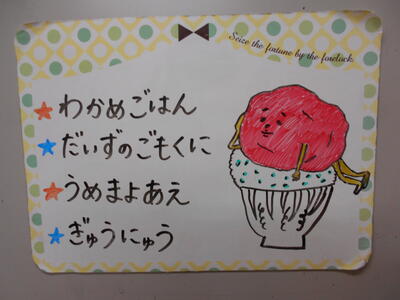 Seize the fortune by the forelock.
★わかめごはん
★だいずのごもくに
★うめまよあえ
★ぎゅうにゅう